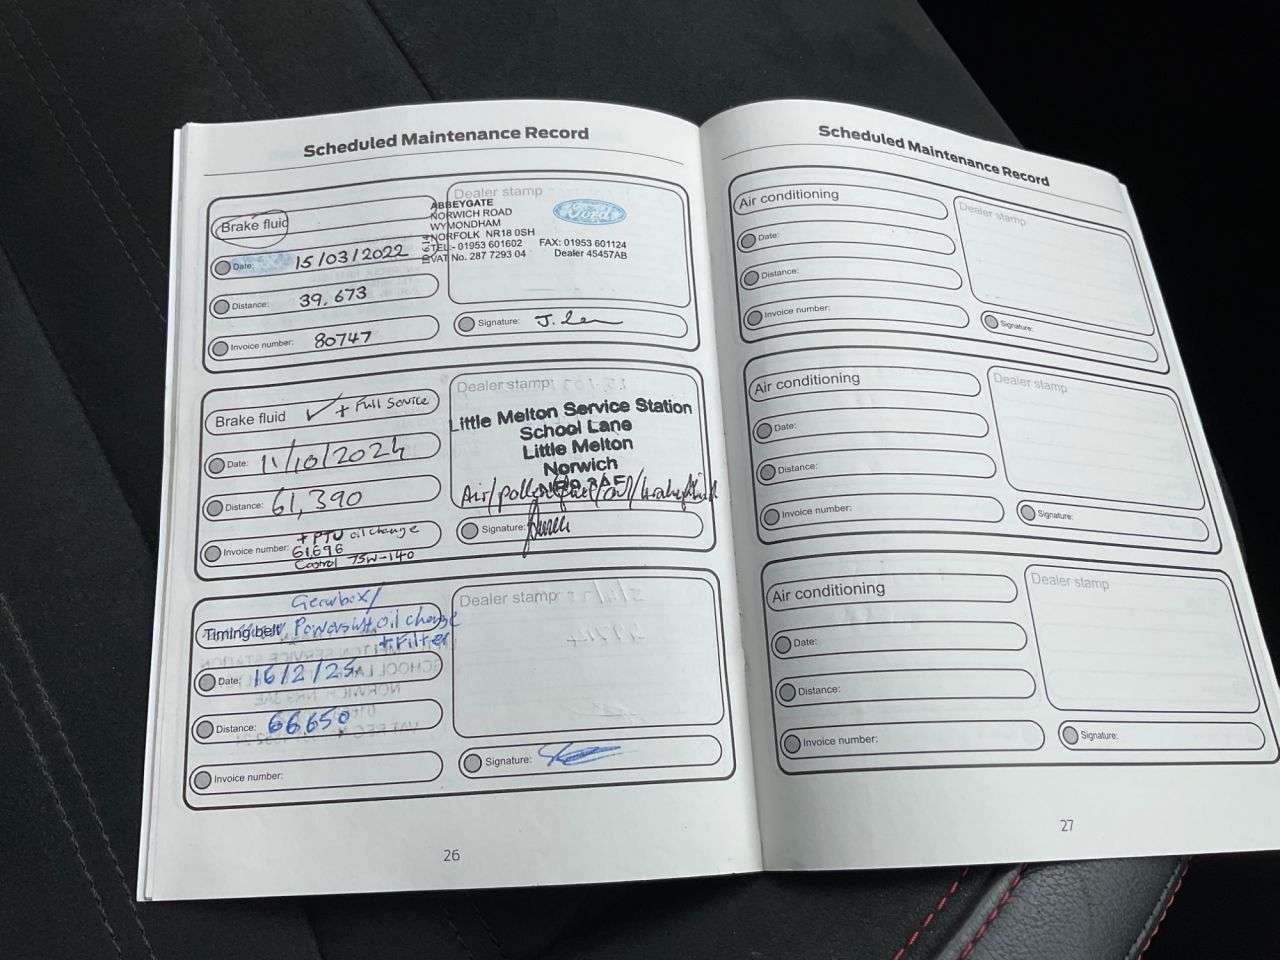 Scheduled Maintenance Record
Brake fluid
Date: 15/03/2022
Distance: 39,673
Invoice number: 80747
Dealer stamp
ABBEYGATE
NORWICH ROAD
WYMONDHAM
NORFOLK NR18 0SH
TEL:- 01953 601602 FAX: 01953 601124
VAT No. 287 7293 04 Dealer 45457AB
Ford
Signature:
Brake fluid ✓ + Full Service
Date: 11/10/2024
Distance: 61,390
Invoice number: + PTU oil change
61,696
Castrol 75W-140
Dealer stamp
Little Melton Service Station
School Lane
Little Melton
Norwich
Air/pollen/fuel/oil/brake fluid
Signature:
Gearbox/
Timing belt Powershift oil change
+ Filter
Date: 16/2/25
Distance: 66,650
Invoice number:
Dealer stamp
Signature:
26
Scheduled Maintenance Record
Air conditioning
Date:
Distance:
Invoice number:
Dealer stamp
Signature:
Air conditioning
Date:
Distance:
Invoice number:
Dealer stamp
Signature:
Air conditioning
Date:
Distance:
Invoice number:
Dealer stamp
Signature:
27